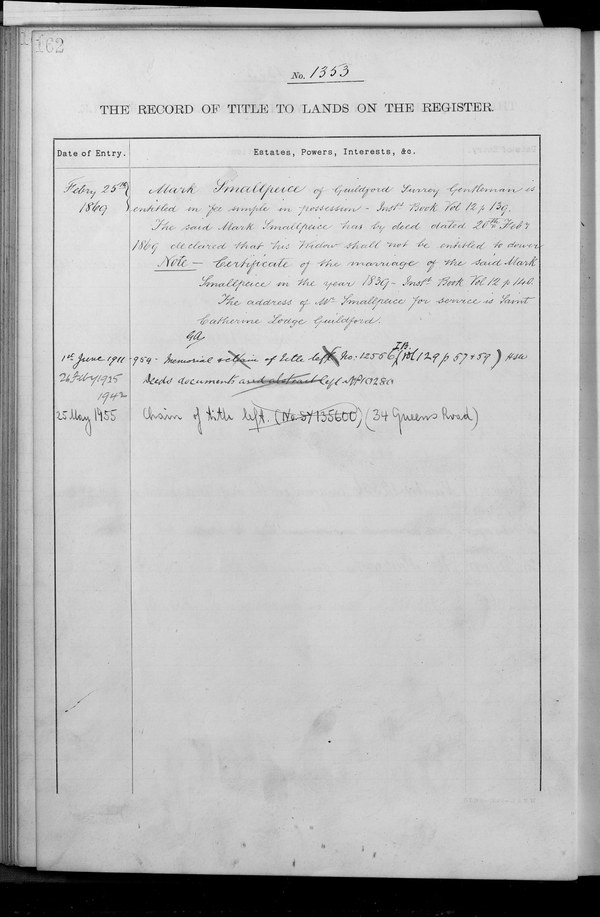 162
No. 1353
THE RECORD OF TITLE TO LANDS ON THE REGISTER.
Date of Entry. Estates, Powers, Interests, &c.
Febry 25th Mark Smallpeice of Guildford Surrey Gentleman is
1869 entitled in fee simple in possession - Inst. Book Vol 12 p 139.
The said Mark Smallpeice has by deed dated 20th Feby
1869 declared that his Widow shall not be entitled to dower
Note - Certificate of the marriage of the said Mark
Smallpeice in the year 1839 - Inst. Book Vol 12 p 140.
The address of Mr Smallpeice for service is Saint
Catherine Lodge Guildford.
1st June 1911 - 954 - Memorial of title left No. 12556 (129 p 57 & 59)
26 Feby 1925 Deeds documents and abstract left
1942
25 May 1955 Chain of title left. (34 Queens Road)